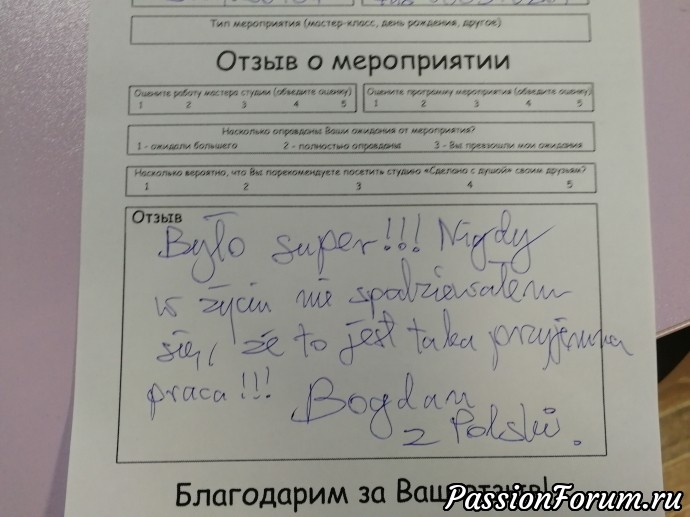 Тип мероприятия (мастер-класс, день рождения, другое)
Отзыв о мероприятии
Оцените работу мастера студии (обведите оценку)
1 2 3 4 5
Оцените программу мероприятия (обведите оценку)
1 2 3 4 5
Насколько оправданы Ваши ожидания от мероприятия?
1 - ожидали большего 2 - полностью оправданы 3 - Вы превзошли мои ожидания
Насколько вероятно, что Вы порекомендуете посетить студию «Сделано с душой» своим друзьям?
1 2 3 4 5
Отзыв
Było super!!! Nigdy
w życiu nie spodziewałem
się, że to jest taka przyjemna
praca!!!
Bogdan
z Polski.
Благодарим за Ваш
PassionForum.ru